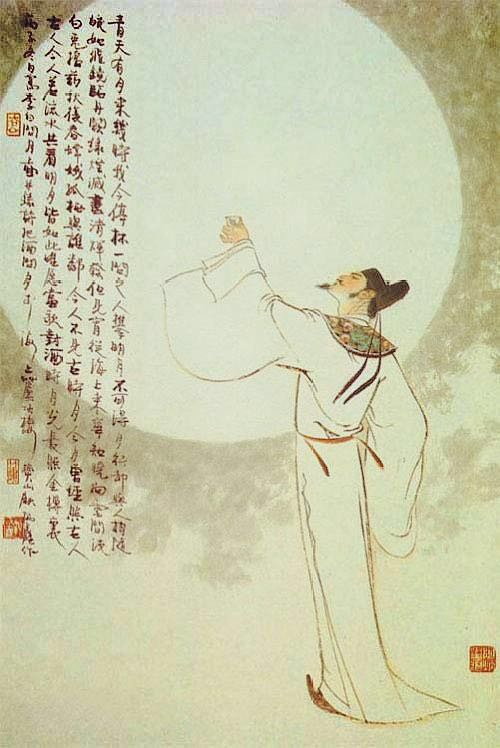 青天有月來幾時我今停杯一問之人攀明月不可得月行却與人相隨
皎如飛鏡臨丹闕綠煙滅盡清輝發但見宵從海上來寧知曉向雲間沒
白兔搗藥秋復春嫦娥孤栖與誰鄰今人不見古時月今月曾經照古人
古人今人若流水共看明月皆如此唯願當歌對酒時月光長照金樽裏
冬日寫李白問月 並錄詩把酒問月於海上 樓 寶山顧炳鑫作